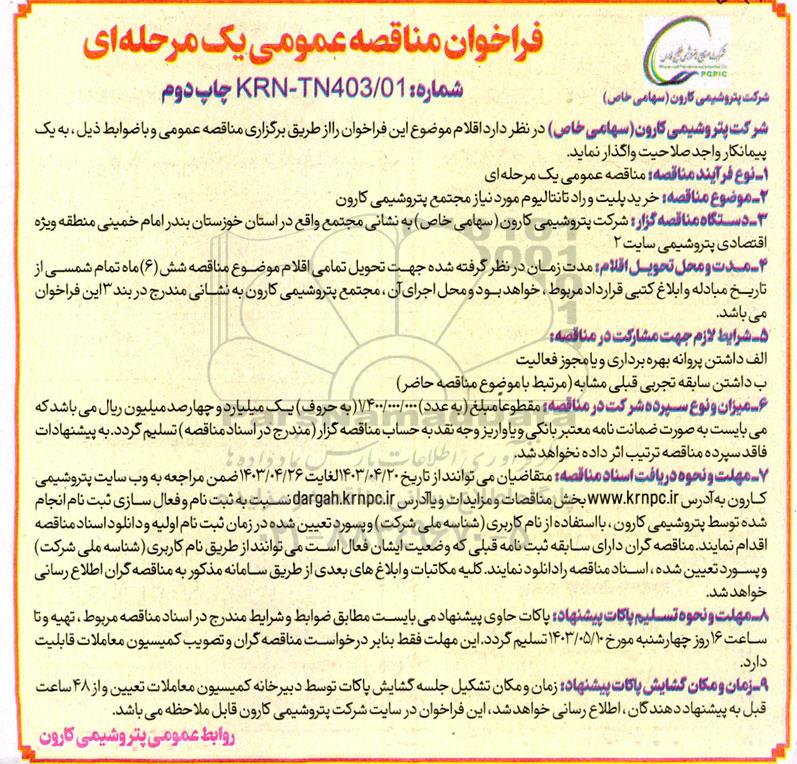 فراخوان مناقصه عمومی یک مرحله‌ای
شماره: KRN-TN403/01 چاپ دوم
PGPIC
شرکت پتروشیمی کارون (سهامی خاص)
شرکت پتروشیمی کارون (سهامی خاص) در نظر دارد اقلام موضوع این فراخوان را از طریق برگزاری مناقصه عمومی و با ضوابط ذیل ، به یک
پیمانکار واجد صلاحیت واگذار نماید.
۱ـ نوع فرآیند مناقصه: مناقصه عمومی یک مرحله ای
۲ـ موضوع مناقصه: خرید پلیت و راد تانتالیوم مورد نیاز مجتمع پتروشیمی کارون
۳ـ دستگاه مناقصه گزار: شرکت پتروشیمی کارون (سهامی خاص) به نشانی مجتمع واقع در استان خوزستان بندر امام خمینی منطقه ویژه
اقتصادی پتروشیمی سایت ۲
۴ـ مدت و محل تحویل اقلام: مدت زمان در نظر گرفته شده جهت تحویل تمامی اقلام موضوع مناقصه شش (۶) ماه تمام شمسی از
تاریخ مبادله و ابلاغ کتبی قرارداد مربوط ، خواهد بود و محل اجرای آن ، مجتمع پتروشیمی کارون به نشانی مندرج در بند ۳ این فراخوان
می باشد.
۵ـ شرایط لازم جهت مشارکت در مناقصه:
الف داشتن پروانه بهره برداری و یا مجوز فعالیت
ب داشتن سابقه تجربی قبلی مشابه (مرتبط با موضوع مناقصه حاضر)
۶ـ میزان و نوع سپرده شرکت در مناقصه: مقطوعاً مبلغ (به عدد) ۱/۴۰۰/۰۰۰/۰۰۰ (به حروف) یک میلیارد و چهارصد میلیون ریال می باشد که
می بایست به صورت ضمانت نامه معتبر بانکی و یا واریز وجه نقد به حساب مناقصه گزار (مندرج در اسناد مناقصه) تسلیم گردد. به پیشنهادات
فاقد سپرده مناقصه ترتیب اثر داده نخواهد شد.
۷ـ مهلت و نحوه دریافت اسناد مناقصه: متقاضیان می توانند از تاریخ ۱۴۰۳/۰۴/۲۰ لغایت ۱۴۰۳/۰۴/۲۶ ضمن مراجعه به وب سایت پتروشیمی
کارون به آدرس www.krnpc.ir بخش مناقصات و مزایدات و یا آدرس dargah.krnpc.ir نسبت به ثبت نام و فعال سازی ثبت نام انجام
شده توسط پتروشیمی کارون ، با استفاده از نام کاربری (شناسه ملی شرکت) و پسورد تعیین شده در زمان ثبت نام اولیه و دانلود اسناد مناقصه
اقدام نمایند. مناقصه گران دارای سابقه ثبت نامه قبلی که وضعیت ایشان فعال است می توانند از طریق نام کاربری (شناسه ملی شرکت)
و پسورد تعیین شده ، اسناد مناقصه را دانلود نمایند. کلیه مکاتبات و ابلاغ های بعدی از طریق سامانه مذکور به مناقصه گران اطلاع رسانی
خواهد شد.
۸ـ مهلت و نحوه تسلیم پاکات پیشنهاد: پاکات حاوی پیشنهاد می بایست مطابق ضوابط و شرایط مندرج در اسناد مناقصه مربوط ، تهیه و تا
ساعت ۱۶ روز چهارشنبه مورخ ۱۴۰۳/۰۵/۱۰ تسلیم گردد. این مهلت فقط بنابر درخواست مناقصه گران و تصویب کمیسیون معاملات قابلیت
دارد.
۹ـ زمان و مکان گشایش پاکات پیشنهاد: زمان و مکان تشکیل جلسه گشایش پاکات توسط دبیرخانه کمیسیون معاملات تعیین و از ۴۸ ساعت
قبل به پیشنهاد دهندگان ، اطلاع رسانی خواهد شد، این فراخوان در سایت شرکت پتروشیمی کارون قابل ملاحظه می باشد.
روابط عمومی پتروشیمی کارون